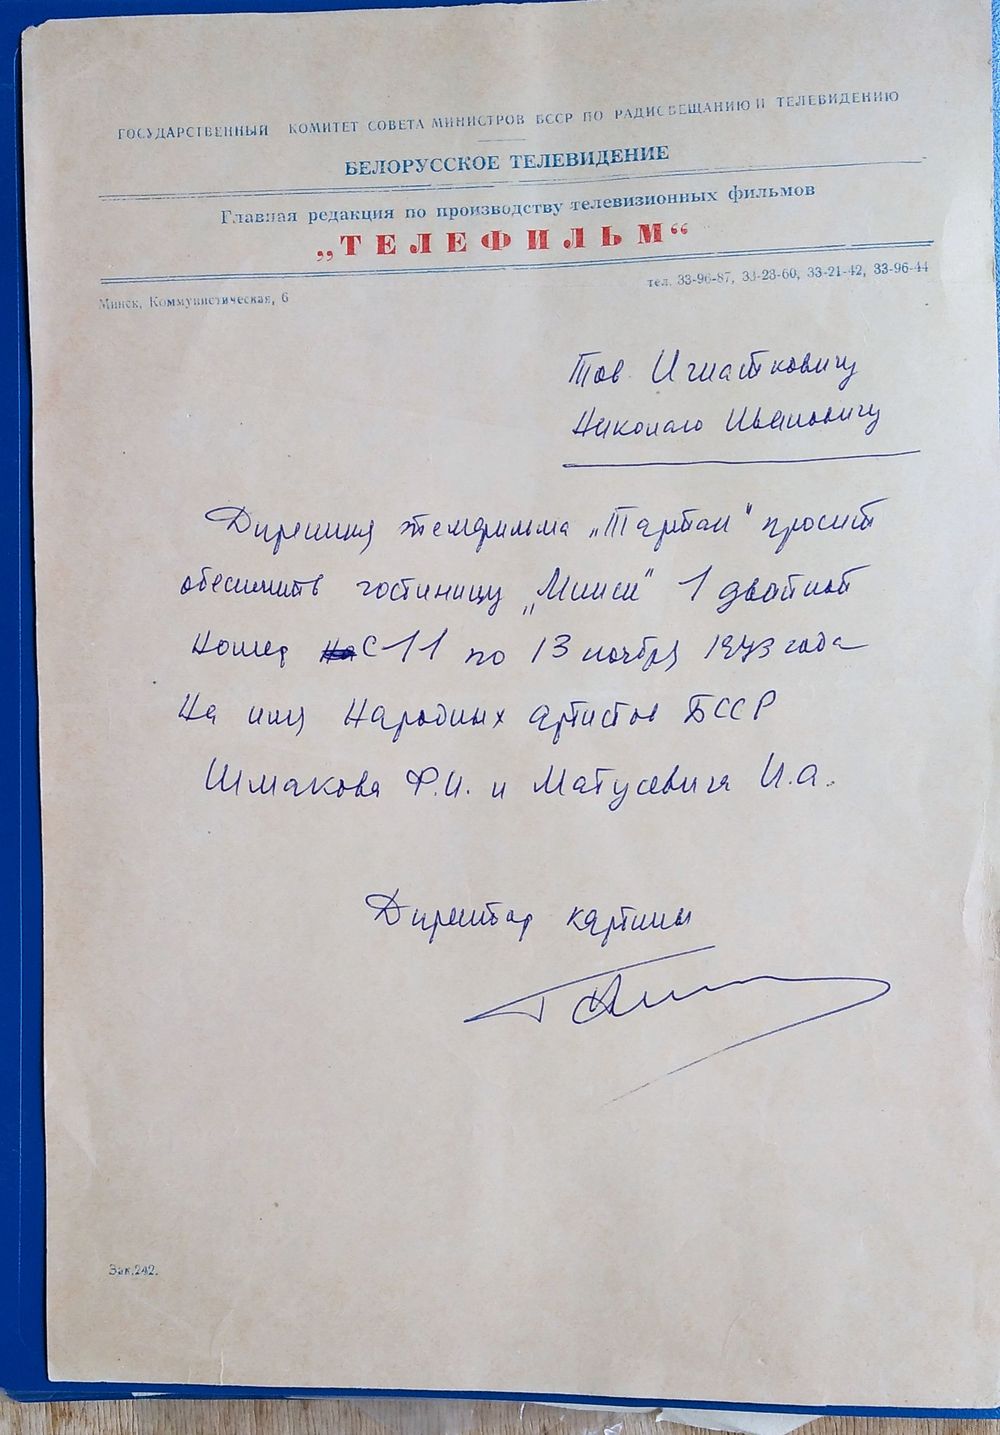 ГОСУДАРСТВЕННЫЙ КОМИТЕТ СОВЕТА МИНИСТРОВ БССР ПО РАДИОВЕЩАНИЮ И ТЕЛЕВИДЕНИЮ
БЕЛОРУССКОЕ ТЕЛЕВИДЕНИЕ
Главная редакция по производству телевизионных фильмов
„ТЕЛЕФИЛЬМ“
Минск, Коммунистическая, 6
тел. 33-96-87, 33-23-60, 33-21-42, 33-96-44
Тов. Игнатковичу
Николаю Ивановичу
Дирекция телефильма „Тартак" просит
обеспечить гостиницу „Минск" 1 двойной
номер с 11 по 13 ноября 1973 года
На имя Народных артистов БССР
Шмакова Ф.И. и Матусевича И.А.
Директор картины
Зак.242.